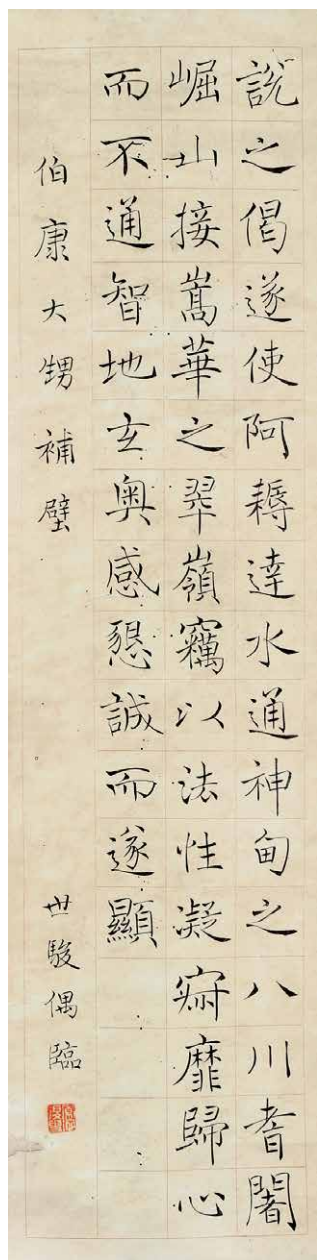 說之偈遂使阿耨達水通神甸之八川耆闍
崛山接嵩華之翠嶺竊以法性凝寂靡歸心
而不通智地玄奧感懇誠而遂顯
伯康大甥補壁
世駿偶臨